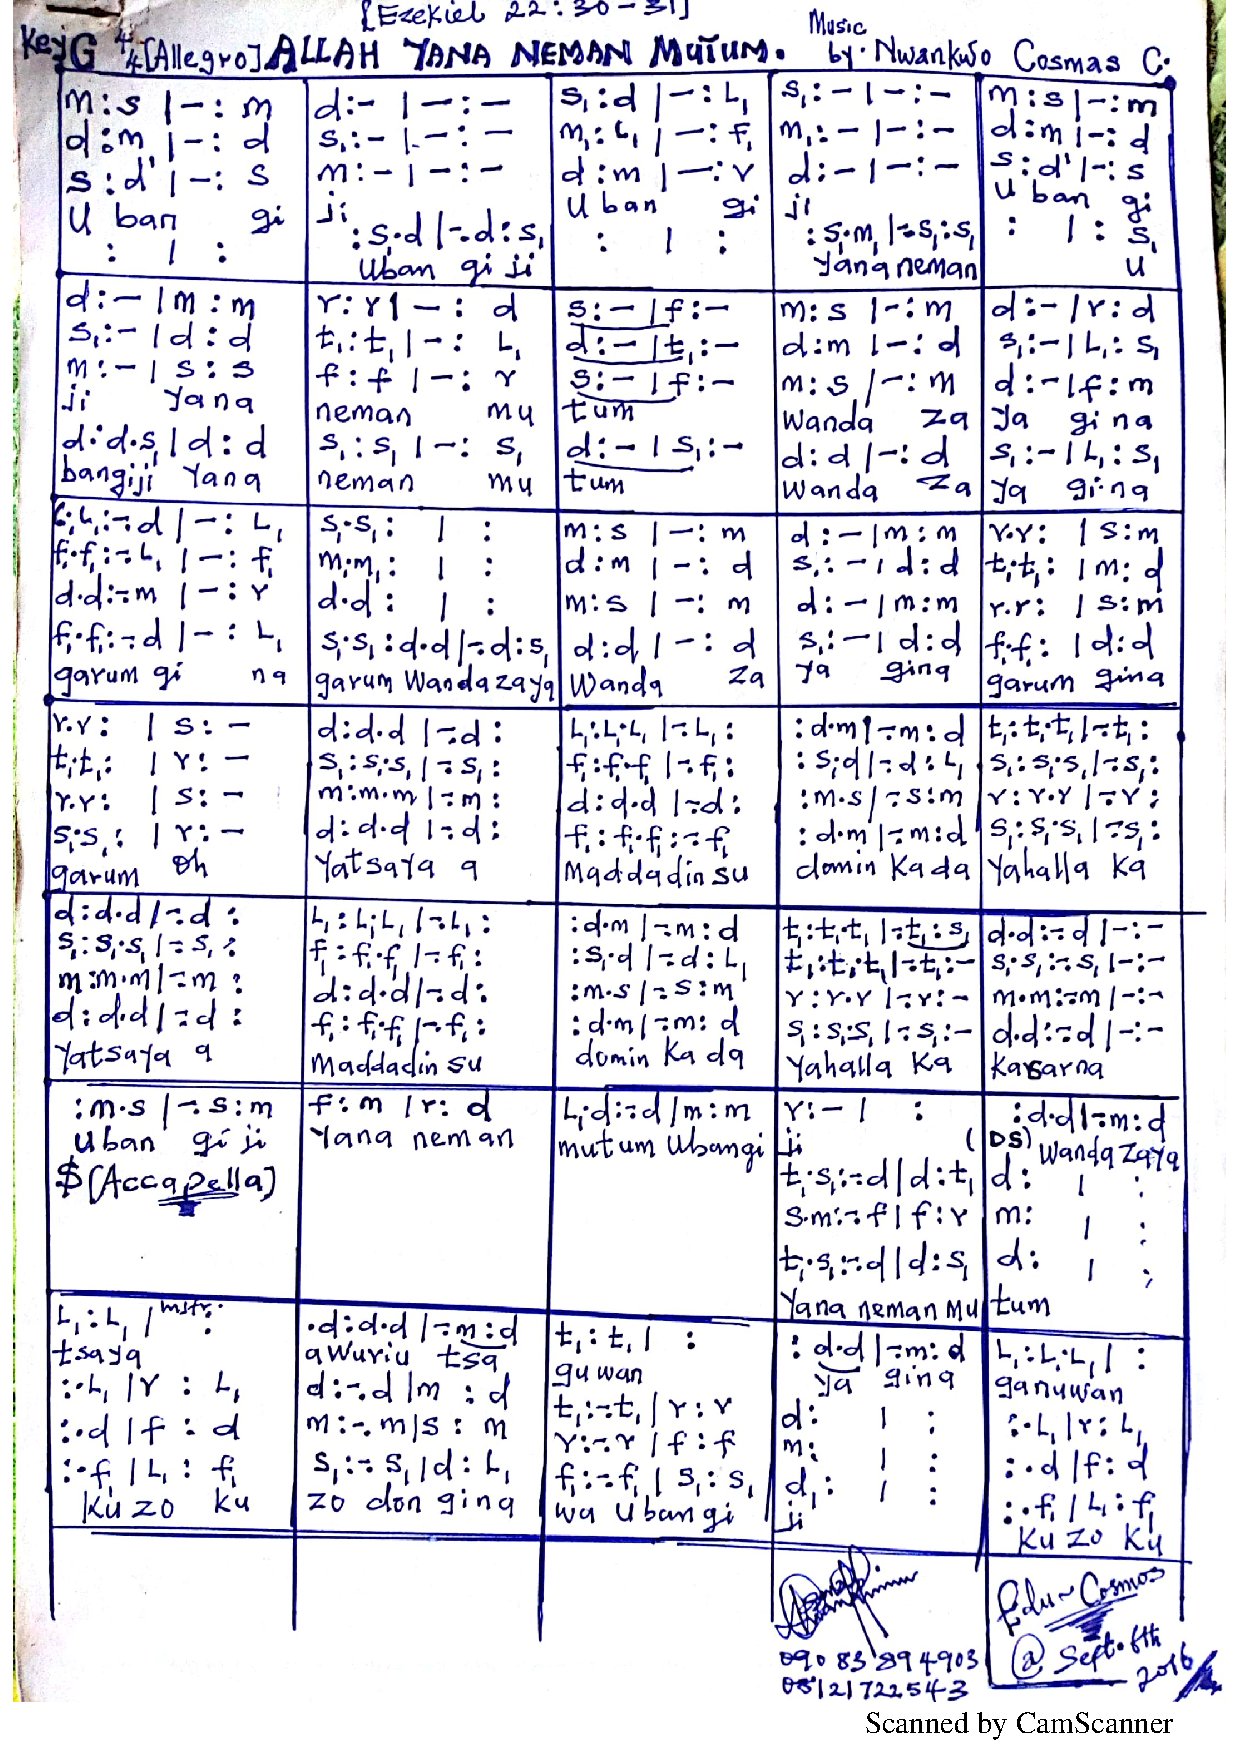 [Ezekiel 22:30-31]
Key G 4/4 [Allegro] ALLAH YANA NEMAN MUTUM. Music by. Nwankwo Cosmas C.
m:s |-: m
d:m |-: d
s:d' |-: s
U ban gi
: | :
d:- |-:-
s₁:- |-:-
m:- |-:-
ji
:s₁.d |-.d:s₁
Uban gi ji
s₁:d |-:L₁
m₁:L₁ |-:f₁
d:m |-:r
U ban gi
: | :
s₁:- |-:-
m₁:- |-:-
d:- |-:-
ji
:s₁.m₁ |-.s₁:s₁
Yana neman
m:s |-:m
d:m |-:d
s:d' |-:s
U ban gi
: | : s₁
U
d:- |m:m
s₁:- |d:d
m:- |s:s
ji Yana
d:d.s₁ |d:d
bangiji Yana
r:r |-: d
t₁:t₁ |-: L₁
f:f |-: r
neman mu
s₁:s₁ |-: s₁
neman mu
s:- |f:-
d:- |t₁:-
s:- |f:-
tum
d:- |s₁:-
tum
m:s |-:m
d:m |-:d
m:s |-:m
Wanda za
d:d |-:d
Wanda za
d:- |r:d
s₁:- |L₁:s₁
d:- |f:m
ya gina
s₁:- |L₁:s₁
ya gina
L₁.L₁:-.d |-: L₁
f₁.f₁:-.L₁ |-: f₁
d.d:-.m |-: r
f₁.f₁:-.d |-: L₁
garum gi na
s₁.s₁: | :
m₁.m₁: | :
d.d: | :
s₁.s₁:d.d |-.d:s₁
garum Wanda zaya
m:s |-: m
d:m |-: d
m:s |-: m
d:d |-: d
Wanda za
d:- |m:m
s₁:- |d:d
d:- |m:m
s₁:- |d:d
ya gina
r.r: |s:m
t₁.t₁: |m:d
r.r: |s:m
f₁.f₁: |d:d
garum gina
r.r: |s:-
t₁.t₁: |r:-
r.r: |s:-
s₁.s₁: |r:-
garum oh
d:d.d |-.d:
s₁:s₁.s₁ |-.s₁:
m:m.m |-.m:
d:d.d |-.d:
Yatsaya a
L₁:L₁.L₁ |-.L₁:
f₁:f₁.f₁ |-.f₁:
d:d.d |-.d:
f₁:f₁.f₁:-.f₁
Maddadin su
:d.m |-.m:d
:s₁.d |-.d:L₁
:m.s |-.s:m
:d.m |-.m:d
domin Kada
t₁:t₁.t₁ |-.t₁:
s₁:s₁.s₁ |-.s₁:
r:r.r |-.r:
s₁:s₁.s₁ |-.s₁:
Yahalla Ka
d:d.d |-.d:
s₁:s₁.s₁ |-.s₁:
m:m.m |-.m:
d:d.d |-.d:
Yatsaya a
L₁:L₁.L₁ |-.L₁:
f₁:f₁.f₁ |-.f₁:
d:d.d |-.d:
f₁:f₁.f₁ |-.f₁:
Maddadin su
:d.m |-.m:d
:s₁.d |-.d:L₁
:m.s |-.s:m
:d.m |-.m:d
domin Ka da
t₁:t₁.t₁ |-.t₁:s₁
t₁:t₁.t₁ |-.t₁:-
r:r.r |-.r:-
s₁:s₁.s₁ |-.s₁:-
Yahalla Ka
d.d:-.d |-:-
s₁.s₁:-.s₁ |-:-
m.m:-.m |-:-
d.d:-.d |-:-
Karsarna
:m.s |-.s:m
Uban gi ji
$ [Accapella]
f:m |r:d
Yana neman
L₁.d:-.d |m:m
mutum Ubangi
r:- | :
ji
t₁.s₁:-.d |d:t₁
s.m:-.f |f:r
t₁.s₁:-.d |d:s₁
Yana neman Mu
:d.d |-.m:d
(DS) Wanda Zaya
d: | :
m: | :
d: | :
tum
L₁:L₁ | instr. :
tsaya
:.L₁ |r : L₁
:.d |f : d
:.f₁ |L₁ : f₁
Ku zo ku
.d:d.d |-.m:d
a wuriu tsa
d:-.d |m : d
m:-.m |s : m
s₁:-.s₁ |d:L₁
zo don gina
t₁:t₁ | :
guwan
t₁:-.t₁ |r:r
r:-.r |f:f
f₁:-.f₁ |s₁:s₁
wa Ubangi
:d.d |-.m:d
ya gina
d: | :
m: | :
d₁: | :
ji
L₁:L₁.L₁ | :
ganuwan
:.L₁ |r:L₁
:.d |f:d
:.f₁ |L₁:f₁
Ku zo Ku
Edu~Cosmos
@ Sept. 6th
2016
090 83 894903
08121722543
Scanned by CamScanner